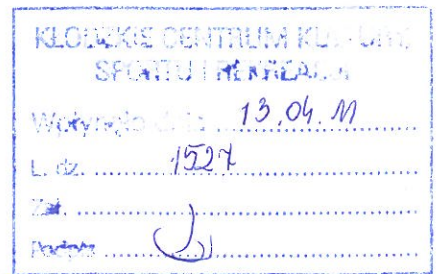 KŁODZKIE CENTRUM KULTURY
SPORTU I REKREACJI
Wpłynęło dnia 13.04.11
L. dz. 1527
Zał.
Podpis